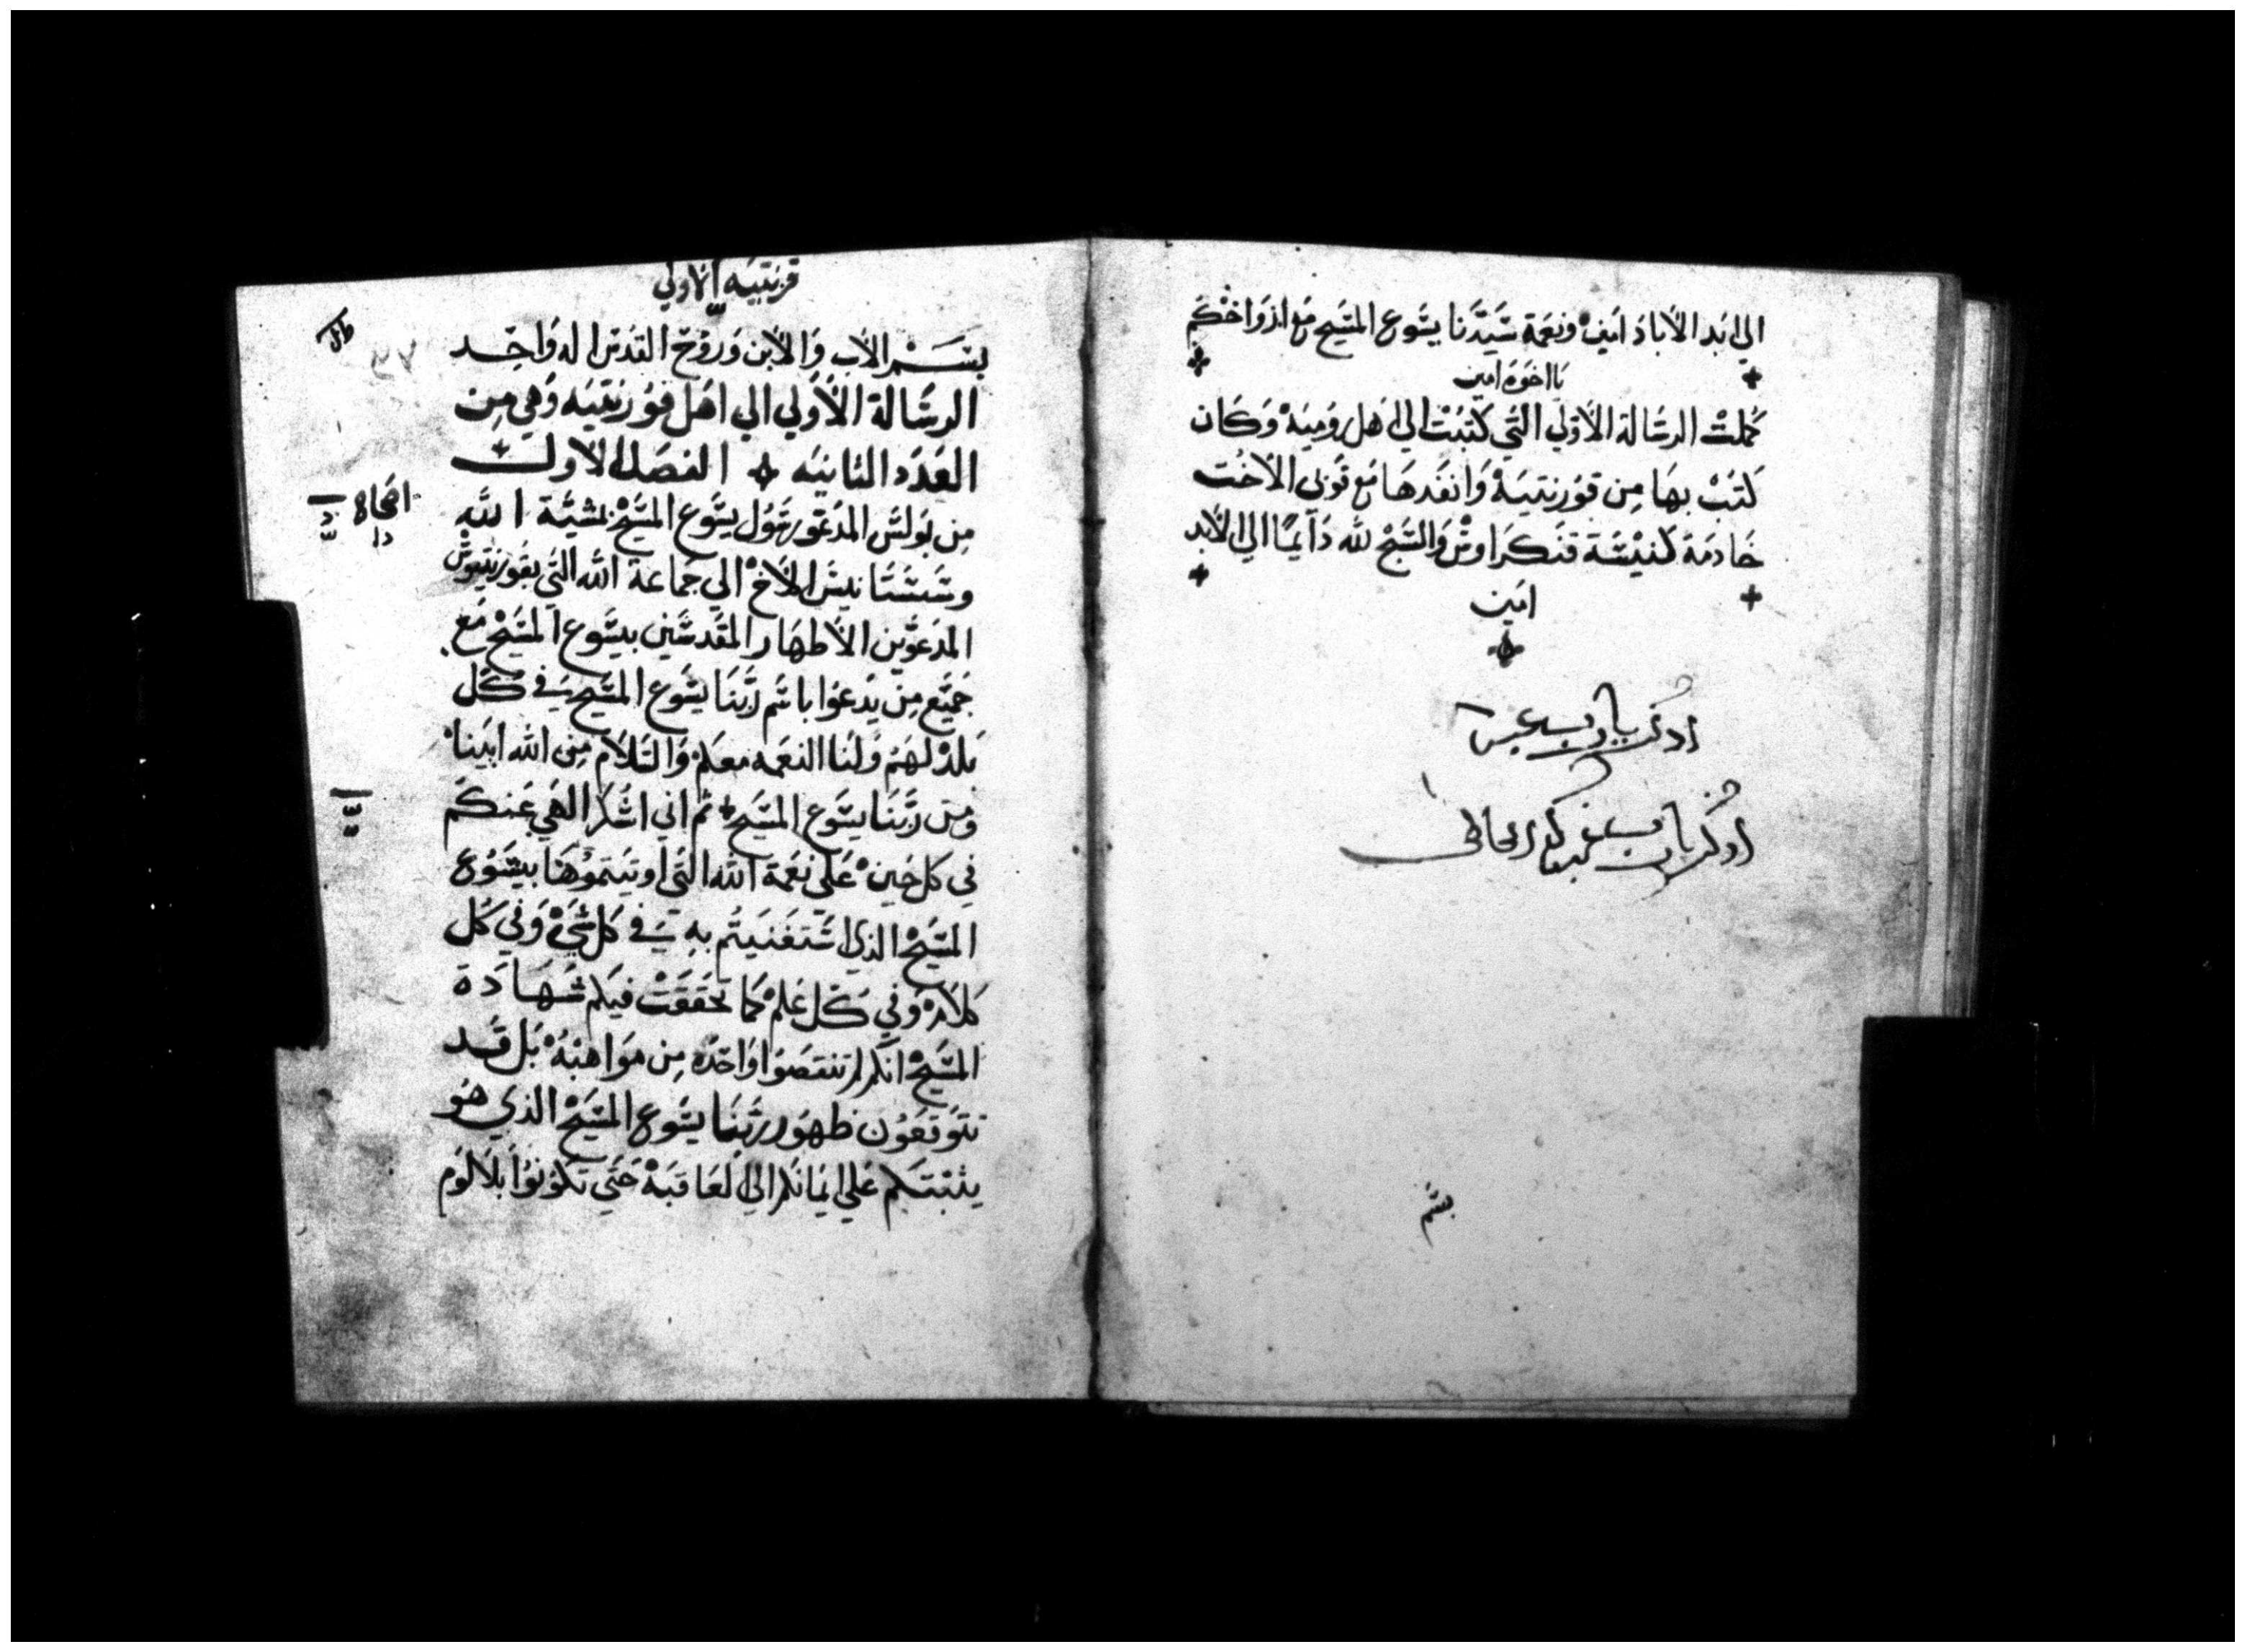 الي ابد الاباد امين ونعمة سيدنا يسوع المسيح مع ارواحكم
يا اخوة امين
كملت الرسالة الاولي التي كتبت الي اهل رومية وكان
كتب بها من قورنتية وانفدها مع فوبي الاخت
خادمة كنيسة قنكراوس والسبح لله دايمًا الي الابد
امين
ادكر يارب عبدك
ادكر يارب عبدك الخاطى
قرنتيه الاولي
بسم الاب والابن وروح القدس اله واحد
الرسالة الاولي الي اهل قورنتيه وهي من
العدد الثانيه الفصل الاول
اصحاح
من بولس المدعو رسول يسوع المسيح بمشية الله
وسستانيس الاخ الي جماعة الله التي بقورنتيوس
المدعوين الاطهار المقدسين بيسوع المسيح مع
جميع من يدعوا باسم ربنا يسوع المسيح في كل
بلد لهم ولنا النعمه معكم والسلام من الله ابينا
ومن ربنا يسوع المسيح ثم اني اشكر الهي عنكم
في كل حين علي نعمة الله التي اوتيتموها بيسوع
المسيح الذي استغنيتم به في كل شي وفي كل
كلامه وفي كل علم كما تحققت فيكم شهادة
المسيح انكم لم تنتقصوا واحده من مواهبه بل قد
تتوقعون ظهور ربنا يسوع المسيح الذي هو
يثبتكم علي ايمانكم الي العاقبة حتي تكونوا بلا لوم